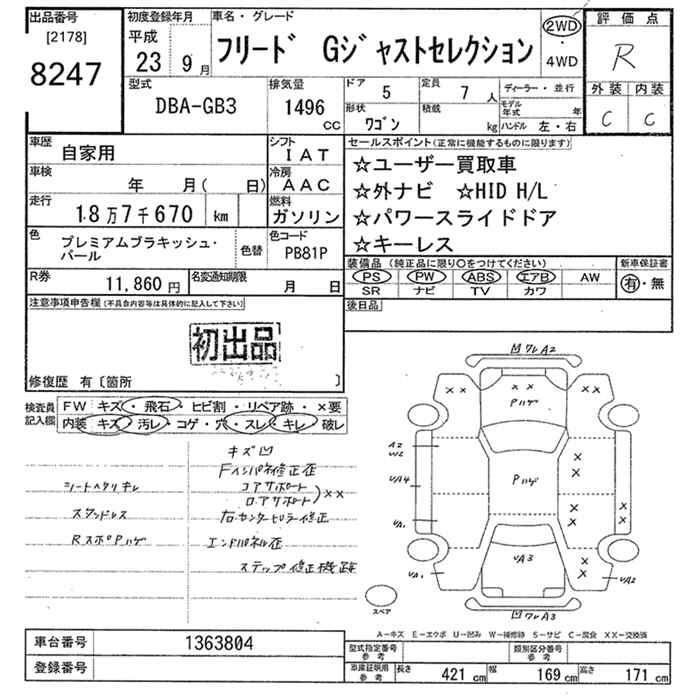 出品番号
[2178]
8247
初度登録年月
平成
23 9月
車名・グレード
フリード Gジャストセレクション
2WD
・
4WD
評価点
R
外装 内装
C C
型式
DBA-GB3
排気量
1496
CC
ドア
5
定員
7人
形状
ワゴン
積載
kg
ディーラー・並行
モデル年式 年
ハンドル 左・右
車歴
自家用
シフト
IAT
車検
年 月( 日)
冷房
AAC
走行
1.8万7千670 km
燃料
ガソリン
色
プレミアムブラキッシュ・パール
色替
色コード
PB81P
R券
11,860円
名変通知期限
月 日
セールスポイント(正常に機能するものに限ります)
☆ユーザー買取車
☆外ナビ ☆HID H/L
☆パワースライドドア
☆キーレス
装備品 (純正品に限り○をつけてください)
PS PW ABS エアB AW
SR ナビ TV カワ
新車保証書
有・無
後日品
注意事項申告欄(不具合内容等は具体的に記入して下さい)
初出品
修復歴 有〔箇所 〕
検査員記入欄
FW キズ・飛石・ヒビ割・リペア跡・×要
内装 キズ・汚レ・コゲ・穴・スレ・キレ・破レ
キズ凹
Fインパネ修正歪
シートヘタリキレ
コアサポート
ロアサポート
××
スタッドレス
右センターピラ修正
RスポPハゲ
エンドパネル歪
ステップ修正機跡
凹ワレA2
××
××
××
Pハゲ
A2
W2
Pハゲ
VA4
VA1
VA3
VA1
VA2
凹ワレA3
スペア
A-キズ E-エクボ U-凹み W-補修跡 S-サビ C-腐食 XX-交換済
車台番号
1363804
登録番号
型式指定番号参考
類別区分番号参考
車庫証明用参考
長さ 421cm 幅 169cm 高さ 171cm